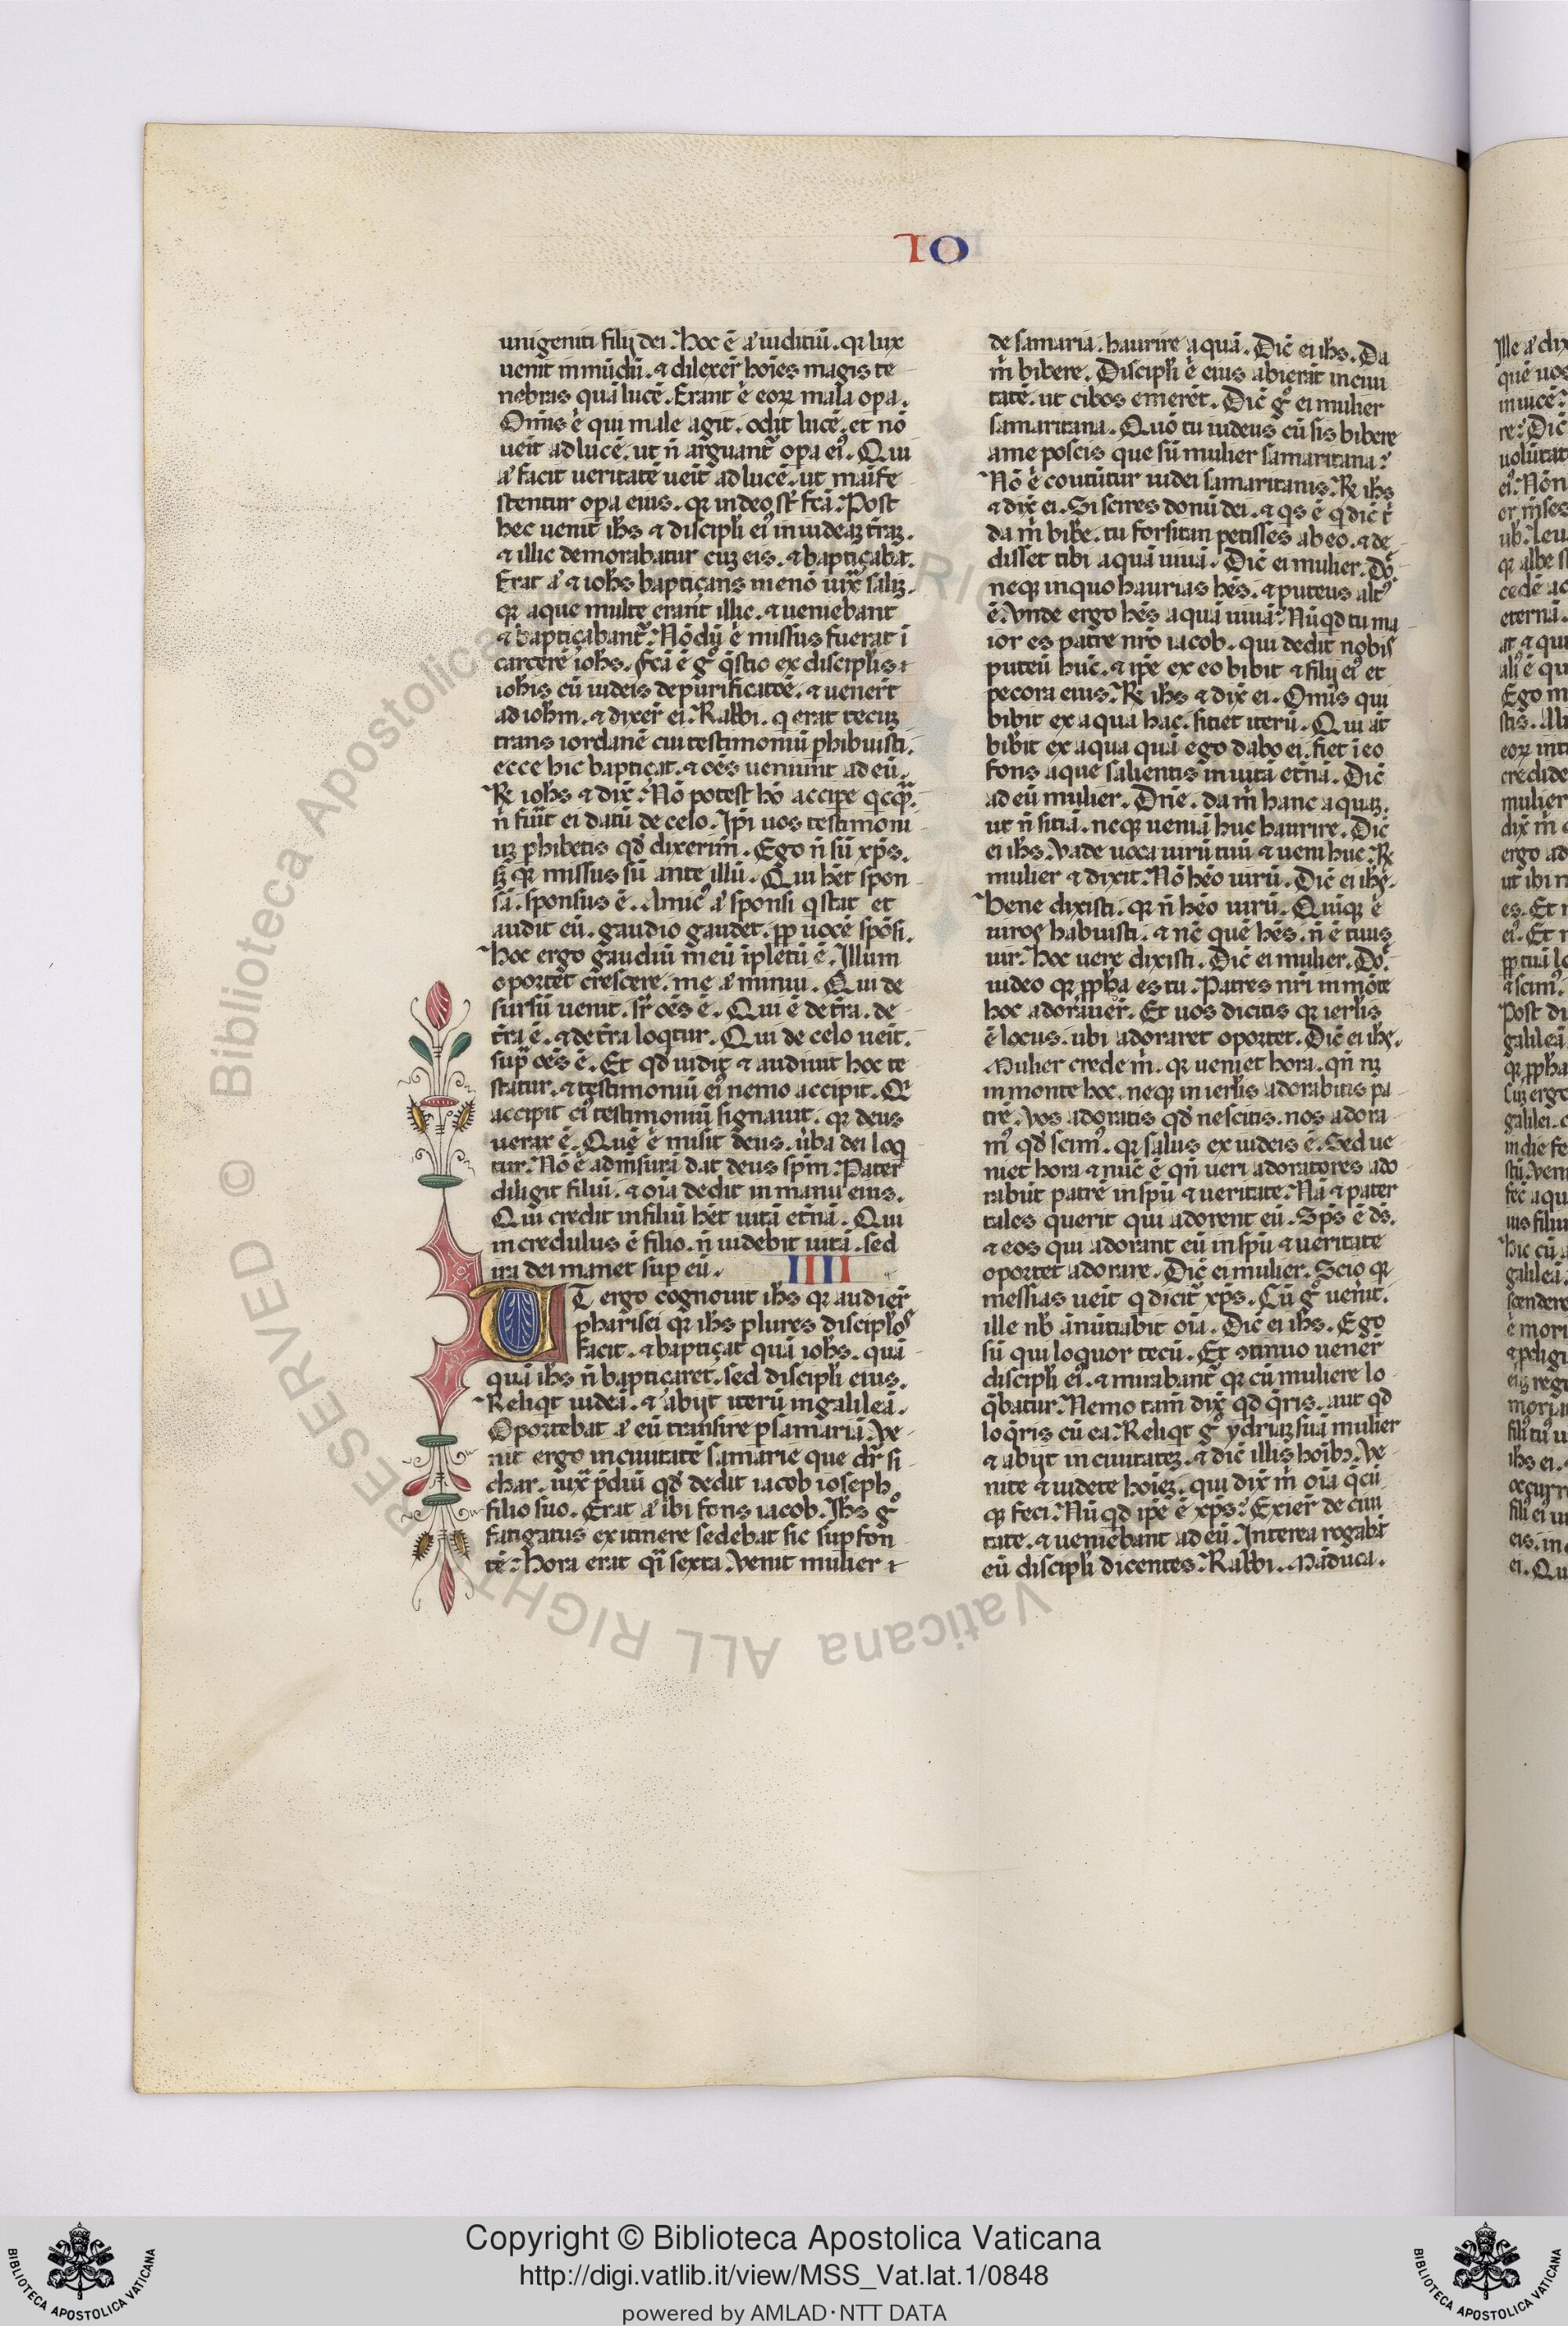 IO
unigeniti filij dei. hoc ē aͥ iuditiū. qꝛ lux
uenit in mūdū. ⁊ dilexer̄ hoīes magis te
nebras quā lucē. Erant ē eoꝝ mala opa.
Omīs ē qui male agit. odit lucē. et nō
ueīt ad lucē. ut n̄ arguant᷑ opa eiꝰ. Qui
aͥ facit ueritatē ueīt ad lucē. ut maīfe
stentur opa eius. qꝛ in deo st̄ fc̄a. Post
hec uenit ihs ⁊ discipli eiꝰ in iudeaꝫ tr̄aꝫ.
⁊ illic demorabatur cuꝫ eis. ⁊ baptiçabat.
Erat aͥ ⁊ iohs baptiçans in enō iux̄ saliꝫ.
qꝛ aque multe erant illic. ⁊ ueniebant
⁊ baptiçabant᷑. Nōdū ē missus fuerat ī
carcerē iohs. fc̄a ē gͦ q̄stio ex disciplis
iohis cū iudeis de purificatōē. ⁊ uener̄t
ad iohm. ⁊ dixer̄ ei. Rabbi. q erat tecuꝫ
trans iordanē cui testimoniū phibuisti.
ecce hic baptiçat. ⁊ oēs ueniunt ad eū.
R̄ iohs ⁊ dix̄. Nō potest hō accipe qcq̄.
n̄ fuīt ei datū de celo. Ipi uos testimoni
uꝫ phibetis qd̄ dixerim. Ego n̄ sū xp̄s.
sꝫ qꝛ missus sū ante illū. Qui hēt spon
sā. sponsus ē. Amicꝰ aͥ sponsi q stat et
audit eū. gaudio gaudet. pp uocē spōsi.
hoc ergo gaudiū meū īpletū ē. Illum
oportet crescere. me aͥ minui. Qui de
sursū uenit. sr̄ oēs ē. Qui ē de tr̄a. de
tr̄a ē. ⁊ de tr̄a loqtur. Qui de celo ueīt.
sup̄ oēs ē. Et qd̄ uidit ⁊ audiuit hoc te
statur. ⁊ testimoniū eiꝰ nemo accipit. Qͥ
accipit eiꝰ testimoniū signauit. qꝛ deus
uerax ē. Quē ē misit deus. ūba dei loq
tur. Nō ē ad mīsurā dat deus sp̄m. Pater
diligit filiū. ⁊ oīa dedit in manu eius.
Qui credit in filiū hēt uitā et̄nā. Qui
incredulus ē filio. n̄ uidebit uitā. sed
ira dei manet sup eū. IIII
UT ergo cognouit ihs qꝛ audier̄
pharisei qꝛ ihs plures disciplos
facit. ⁊ baptiçat quā iohs. quā
quā ihs n̄ baptiçaret. sed discipli eius.
Reliqt iudeā. ⁊ abijt iterū in galileā.
Oportebat aͥ eū transire p samariā. Ve
nit ergo in ciuitatē samarie que dr̄ si
char. iux̄ p̄diū qd̄ dedit iacob ioseph
filio suo. Erat aͥ ibi fons iacob. Ihs gͦ
fatigatus ex itinere sedebat sic sup fon
tē. hora erat qͥ sexta. Venit mulier
de samaria. haurire aquā. Dic̄ ei ihs. Da
m̄ bibere. Discipli ē eius abierāt in ciui
tatē. ut cibos emerēt. Dic̄ gͦ ei mulier
samaritana. Quō tu iudeus cū sis bibere
a me poscis que sū mulier samaritana?
Nō ē coutūtur iudei samaritanis. R̄ ihs
⁊ dix̄ ei. Si scires donū dei. ⁊ qs ē q dic̄ t̄
da m̄ bibe. tu forsitan petisses ab eo. ⁊ de
disset tibi aquā uiuā. Dic̄ ei mulier. Dō.
neqꝫ in quo haurias hēs. ⁊ puteus altꝰ
ē. Vnde ergo hēs aquā uiuā? Nūqd tu ma
ior es patre nr̄o iacob. qui dedit nobis
puteū hūc. ⁊ ipe ex eo bibit ⁊ filij eiꝰ et
pecora eius. R̄ ihs ⁊ dix̄ ei. Omīs qui
bibit ex aqua hac. sitiet iterū. Qui āt
bibit ex aqua quā ego dabo ei. fiet ī eo
fons aque salientis in uitā et̄nā. Dic̄
ad eū mulier. Dn̄e. da m̄ hanc aquaꝫ.
ut n̄ sitiā. neqꝫ ueniā huc haurire. Dic̄
ei ihs. Vade uoca uirū tuū ⁊ ueni huc. R̄
mulier ⁊ dixit. Nō hēo uirū. Dic̄ ei ihs.
bene dixisti. qꝛ n̄ hēo uirū. Quīqꝫ ē
uiros habuisti. ⁊ nc̄ quē hēs. n̄ ē tuus
uir. hoc uere dixisti. Dic̄ ei mulier. Dō.
uideo qꝛ ppha es tu. Patres nr̄i in mōte
hoc adorauer̄. Et uos dicitis qꝛ ierlis
ē locus. ubi adoraret oportet. Dic̄ ei ihs.
Mulier crede m̄. qꝛ ueniet hora. qn̄ nꝫ
in monte hoc. neqꝫ in ierlis adorabitis pa
trē. Vos adoratis qd̄ nescitis. nos adora
mꝰ qd̄ scimꝰ. qꝛ salus ex iudeis ē. Sed ue
niet hora ⁊ nūc ē qn̄ ueri adoratores ado
rabūt patrē in spū ⁊ ueritate. Nā ⁊ pater
tales querit qui adorent eū. Sp̄s ē ds.
⁊ eos qui adorant eū in spū ⁊ ueritate
oportet adorare. Dic̄ ei mulier. Scio qꝛ
messias ueīt q dicit᷑ xp̄s. Cū gͦ uen̄it.
ille nb̄ ānūtiabit oīa. Dic̄ ei ihs. Ego
sū qui loquor tecū. Et ↄtinuo uener̄
discipli eiꝰ. ⁊ mirabant᷑ qꝛ cū muliere lo
q̄batur. Nemo tam̄ dix̄ qd q̄ris. aut qd
loq̄ris cū ea. Reliqt gͦ ydriaꝫ suā mulier
⁊ abijt in ciuitateꝫ. ⁊ dic̄ illis hoībꝫ. Ve
nite ⁊ uidete hoīeꝫ. qui dix̄ m̄ oīa q̄cū
qꝫ feci. Nūqd ipe ē xp̄s? Exier̄ de ciui
tate. ⁊ ueniebant ad eū. Interea rogabāt
eū discipli dicentes. Rabbi. Māduca.
Biblioteca Apostolica Vaticana ALL RIGHTS RESERVED ©
Copyright © Biblioteca Apostolica Vaticana
http://digi.vatlib.it/view/MSS_Vat.lat.1/0848
powered by AMLAD·NTT DATA
BIBLIOTECA APOSTOLICA VATICANA
BIBLIOTECA APOSTOLICA VATICANA